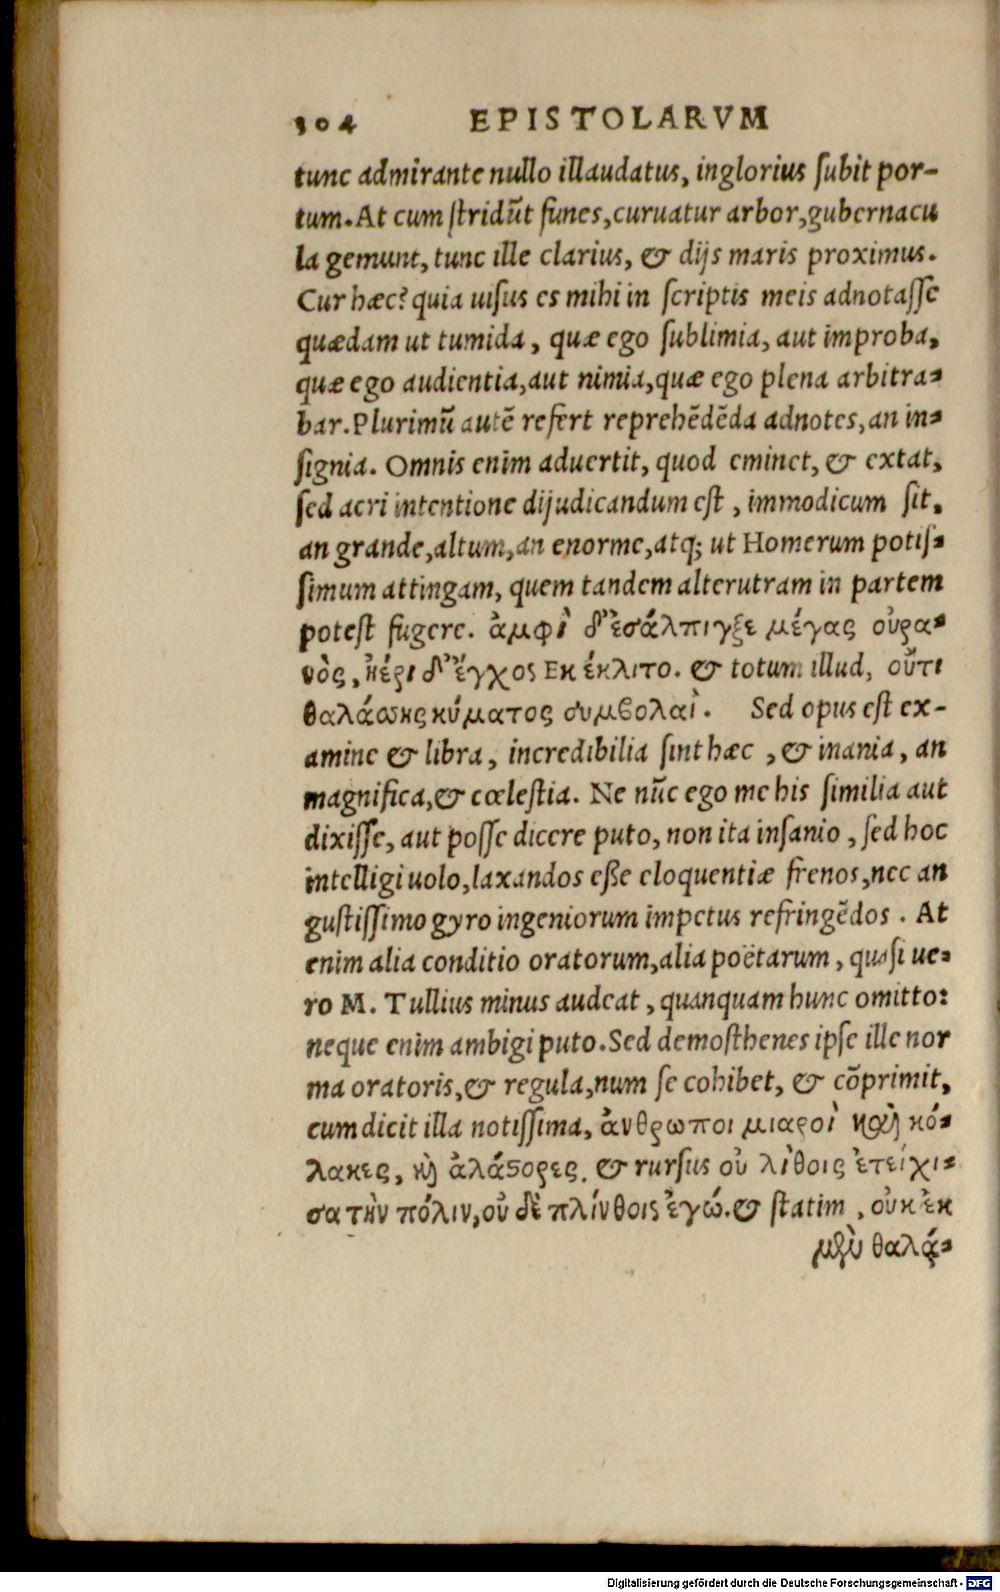 304 EPISTOLARVM
tunc admirante nullo illaudatus, inglorius ſubit por-
tum. At cum ſtridūt funes, curuatur arbor, gubernacu
la gemunt, tunc ille clarius, & dijs maris proximus.
Cur hæc? quia uiſus es mihi in ſcriptis meis adnotaſſe
quædam ut tumida, quæ ego ſublimia, aut improba,
quæ ego audientia, aut nimia, quæ ego plena arbitra-
bar. Plurimū autē refert reprehēdēda adnotes, an in-
ſignia. Omnis enim aduertit, quod eminet, & extat,
ſed acri intentione dijudicandum eſt, immodicum ſit,
an grande, altum, an enorme, atq; ut Homerum potiſ-
ſimum attingam, quem tandem alterutram in partem
poteſt fugere. ἀμφὶ δ' ἐσάλπιγξε μέγας οὐρα-
νὸς, ἠέρι δ' ἔγχος Εκ ἐκλιτο. & totum illud, οὔτι
θαλάσσης κύματος συμβολαὶ. Sed opus eſt ex-
amine & libra, incredibilia ſint hæc, & inania, an
magnifica, & cœleſtia. Ne nūc ego me his ſimilia aut
dixiſſe, aut poſſe dicere puto, non ita inſanio, ſed hoc
intelligi uolo, laxandos eße eloquentiæ frenos, nec an
guſtiſſimo gyro ingeniorum impetus refringēdos. At
enim alia conditio oratorum, alia poëtarum, quaſi ue-
ro M. Tullius minus audeat, quanquam hunc omitto:
neque enim ambigi puto. Sed demoſthenes ipſe ille nor
ma oratoris, & regula, num ſe cohibet, & cōprimit,
cum dicit illa notiſſima, ἀνθρωποι μιαροὶ καὶ κό-
λακες, καὶ ἀλάστορες. & rurſus οὐ λίθοις ἐτείχι-
σα τὴν πόλιν, οὐ δὲ πλίνθοις ἐγώ. & ſtatim, οὐκ ἐκ
μὲν θαλά-
Digitalisierung gefördert durch die Deutsche Forschungsgemeinschaft - DFG